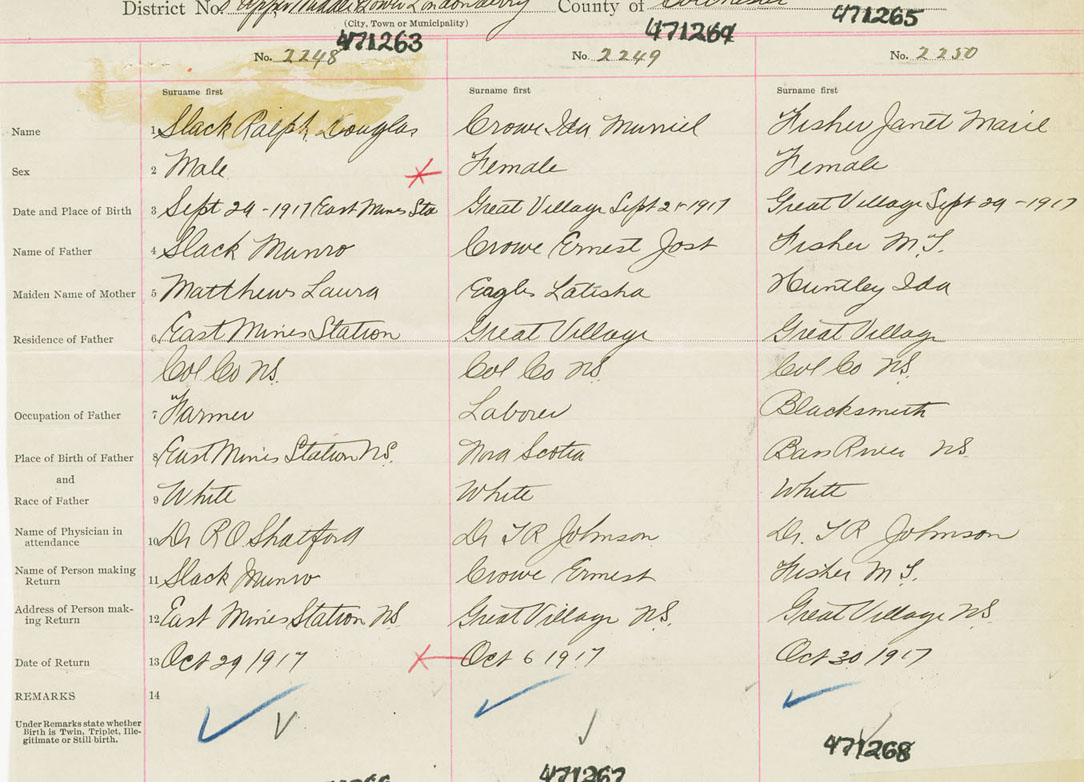 District No. Upper Middle Lower Londonderry County of Colchester
(City, Town or Municipality)
471263 471264 471265
No. 2248 No. 2249 No. 2250
Surname first Surname first Surname first
Name 1 Slack Ralph Douglas Crowe Ida Muriel Fisher Janet Marie
Sex 2 Male Female Female
Date and Place of Birth 3 Sept 29-1917 East Mines Sta Great Village Sept 21-1917 Great Village Sept 29-1917
Name of Father 4 Slack Munro Crowe Ernest Jost Fisher M.
Maiden Name of Mother 5 Matthews Laura Eagles Latisha Huntley Ida
Residence of Father 6 East Mines Station Great Village Great Village
Col Co N.S. Col Co N.S. Col Co N.S.
Occupation of Father 7 Farmer Laborer Blacksmith
Place of Birth of Father 8 East Mines Station N.S. Nova Scotia Bass River N.S.
and
Race of Father 9 White White White
Name of Physician in
attendance 10 Dr R O Shatford Dr T R Johnson Dr. T R Johnson
Name of Person making
Return 11 Slack Munro Crowe Ernest Fisher M.
Address of Person mak-
ing Return 12 East Mines Station N.S. Great Village N.S. Great Village N.S.
Date of Return 13 Oct 29 1917 Oct 6 1917 Oct 30 1917
REMARKS 14
Under Remarks state whether
Birth is Twin, Triplet, Ille-
gitimate or Still-birth.
471267 471268